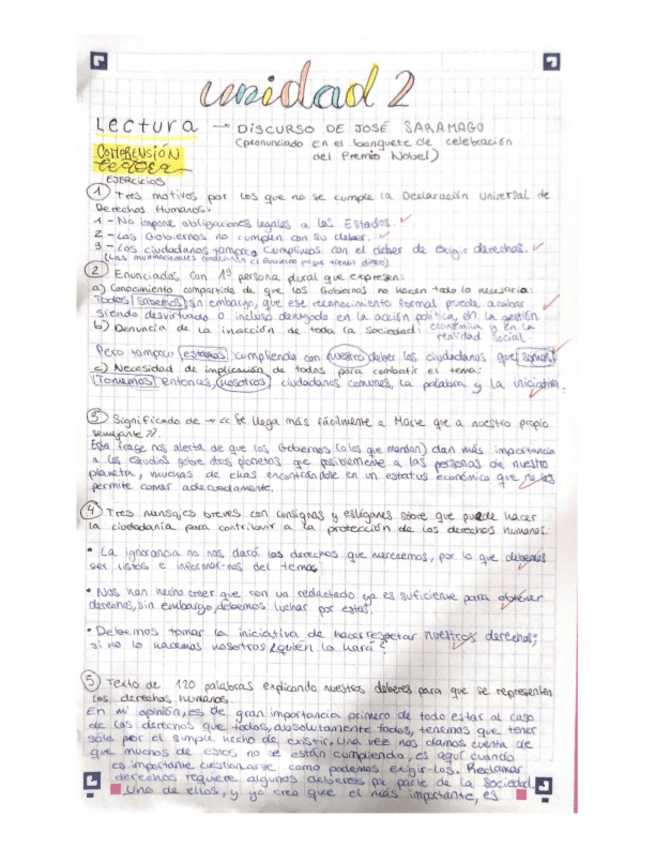 unidad 2
Lectura → DISCURSO DE JOSÉ SARAMAGO
(pronunciado en el banquete de celebración
del Premio Nobel)
COMPRENSIÓN
LECTORA
EJERCICIOS
① Tres motivos por los que no se cumple la Declaración Universal de
Derechos Humanos:
1 - No impone obligaciones legales a los Estados.
2 - Los Gobiernos no cumplen con su deber.
3 - Los ciudadanos tampoco cumplimos con el deber de exigir derechos.
(Las multinacionales condicionan el Gobierno porque tienen dinero)
② Enunciados con 1ª persona plural que expresen:
a) Conocimiento compartido de que los Gobiernos no hacen todo lo necesario:
Todos sabemos, sin embargo, que ese reconocimiento formal puede acabar
siendo desvirtuado o incluso denegado en la acción política, en la gestión
económica y en la
b) Denuncia de la inacción de toda la Sociedad:
realidad social.
Pero tampoco estamos cumpliendo con nuestro deber los ciudadanos que somos.
c) Necesidad de implicación de todos para combatir el tema:
Tomemos entonces, nosotros, ciudadanos comunes, la palabra y la iniciativa.
③ Significado de → << Se llega más fácilmente a Marte que a nuestro propio
semejante >>.
Esta frase nos alerta de que los Gobiernos (o los que mandan) dan más importancia
a los estudios sobre otros planetas que posiblemente a las personas de nuestro
planeta, muchas de ellas encontrándose en un estatus económico que no les
permite comer adecuadamente.
④ Tres mensajes breves con consignas y eslóganes sobre que puede hacer
la ciudadanía para contribuir a la protección de los derechos humanos:
• La ignorancia no nos dará los derechos que merecemos, por lo que debemos
ser listos e informar-nos del tema.
• Nos han hecho creer que con un redactado ya es suficiente para obtener
derechos, sin embargo, debemos luchar por estos.
• Debemos tomar la iniciativa de hacer respetar nuestros derechos;
si no lo hacemos nosotros ¿quién lo hará?
⑤ Texto de 120 palabras explicando nuestros deberes para que se representen
los derechos humanos.
En mi opinión, es de gran importancia primero de todo estar al caso
de los derechos que todos, absolutamente todos, tenemos que tener
sólo por el simple hecho de existir. Una vez nos damos cuenta de
que muchos de estos no se están cumpliendo, es aquí cuando
es importante cuestionarse como podemos exigir-los. Reclamar
derechos requiere algunos deberes por parte de la sociedad.
Uno de ellos, y yo creo que el más importante, es